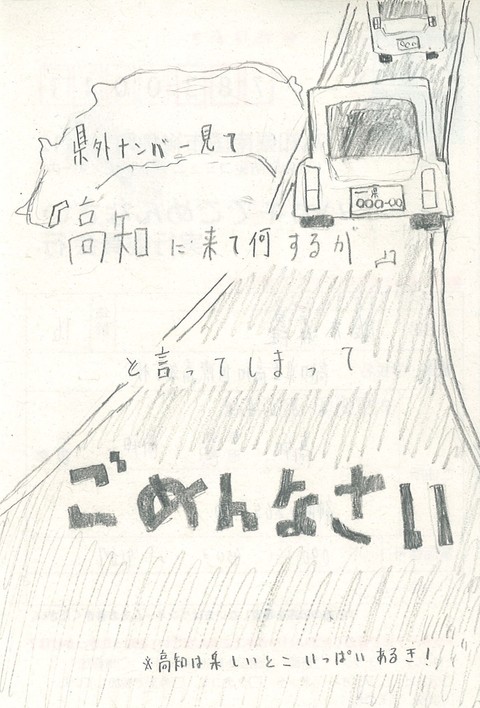 県外ナンバー見て
『高知に来て何するが』
と言ってしまって
ごめんなさい
※高知は楽しいとこいっぱいあるき!